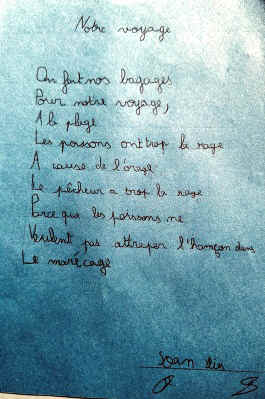 Notre voyage
On fait nos bagages
Pour notre voyage,
A la plage
Les poissons ont trop la rage
A cause de l'orage
Le pêcheur a trop la rage
Parce que les poissons ne
Veulent pas attraper l'hameçon dans
Le marécage